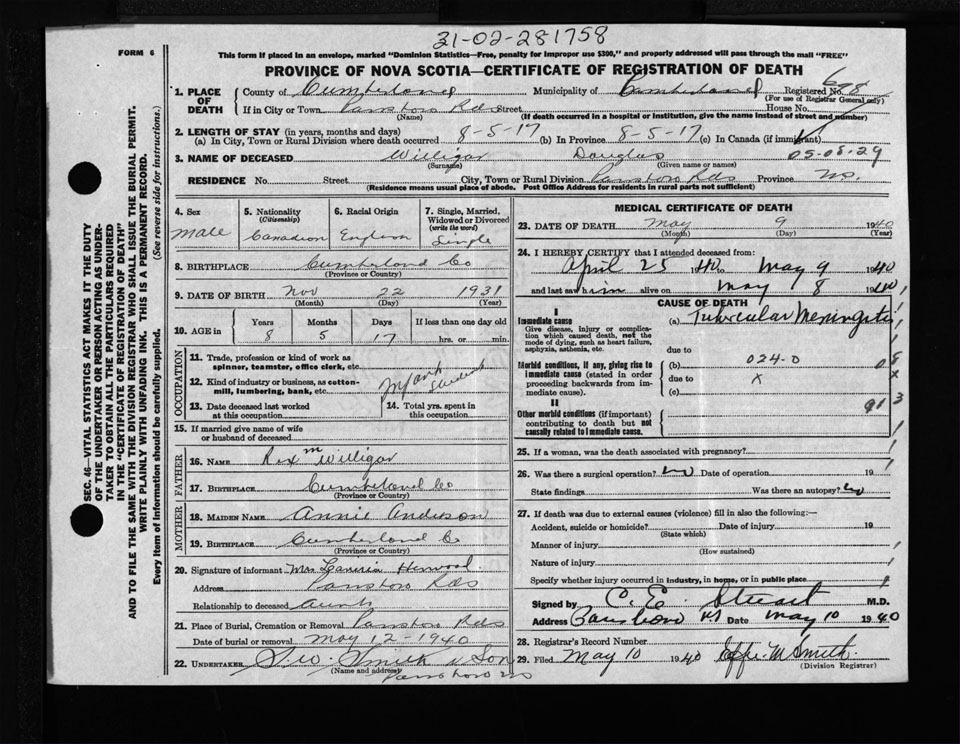 31-02-281758
FORM 6
This form if placed in an envelope, marked "Dominion Statistics—Free, penalty for improper use $300," and properly addressed will pass through the mail "FREE"
PROVINCE OF NOVA SCOTIA—CERTIFICATE OF REGISTRATION OF DEATH
1. PLACE OF DEATH
County of Cumberland Municipality of Cumberland Registered No. 688
(For use of Registrar General only)
If in City or Town Parrsboro Rds Street House No.
(Name) (If death occurred in a hospital or institution, give the name instead of street and number)
2. LENGTH OF STAY (in years, months and days)
(a) In City, Town or Rural Division where death occurred 8-5-17 (b) In Province 8-5-17 (c) In Canada (if immigrant)
3. NAME OF DECEASED Willigar Douglas 05-08-29
(Surname) (Given name or names)
RESIDENCE No. Street City, Town or Rural Division Parrsboro Rds Province NS.
(Residence means usual place of abode. Post Office Address for residents in rural parts not sufficient)
4. Sex
Male
5. Nationality
(Citizenship)
Canadian
6. Racial Origin
English
7. Single, Married, Widowed or Divorced
(write the word)
Single
8. BIRTHPLACE Cumberland Co
(Province or Country)
9. DATE OF BIRTH Nov 22 1931
(Month) (Day) (Year)
10. AGE in
Years Months Days If less than one day old
8 5 17 hrs. or min.
OCCUPATION
11. Trade, profession or kind of work as spinner, teamster, office clerk, etc.
12. Kind of industry or business, as cotton-mill, lumbering, bank, etc.
13. Date deceased last worked at this occupation
14. Total yrs. spent in this occupation
15. If married give name of wife or husband of deceased
FATHER
16. NAME Rex M Willigar
17. BIRTHPLACE Cumberland Co
(Province or Country)
MOTHER
18. MAIDEN NAME Annie Anderson
19. BIRTHPLACE Cumberland Co
(Province or Country)
20. Signature of informant Mrs
Address Parrsboro Rds
Relationship to deceased Aunt
21. Place of Burial, Cremation or Removal Parrsboro Rds
Date of burial or removal May 12-1940
22. UNDERTAKER Smith & Son
(Name and address) Parrsboro NS
MEDICAL CERTIFICATE OF DEATH
23. DATE OF DEATH May 9 1940
(Month) (Day) (Year)
24. I HEREBY CERTIFY that I attended deceased from:
April 25 1940 to May 9 1940
and last saw him alive on May 8 1940
CAUSE OF DEATH
I
Immediate cause (a) Tubercular Meningitis
Give disease, injury or complication which caused death, not the mode of dying, such as heart failure, asphyxia, asthenia, etc.
due to
Morbid conditions, if any, giving rise to immediate cause (stated in order proceeding backwards from immediate cause).
(b) 024-0
due to x
(c)
II
Other morbid conditions (if important) contributing to death but not causally related to immediate cause.
25. If a woman, was the death associated with pregnancy?
26. Was there a surgical operation? No Date of operation 19
State findings Was there an autopsy? No
27. If death was due to external causes (violence) fill in also the following:—
Accident, suicide or homicide? Date of injury 19
(State which)
Manner of injury
(How sustained)
Nature of injury
Specify whether injury occurred in industry, in home, or in public place
Signed by C. E. Stuart M.D.
Address Parrsboro NS Date May 10 1940
28. Registrar's Record Number
29. Filed May 10 1940 Effie M Smith
(Division Registrar)
SEC. 46—VITAL STATISTICS ACT MAKES IT THE DUTY
OF THE UNDERTAKER OR PERSON ACTING AS UNDER-
TAKER TO OBTAIN ALL THE PARTICULARS REQUIRED
IN THE "CERTIFICATE OF REGISTRATION OF DEATH"
AND TO FILE THE SAME WITH THE DIVISION REGISTRAR WHO SHALL ISSUE THE BURIAL PERMIT.
WRITE PLAINLY WITH UNFADING INK. THIS IS A PERMANENT RECORD.
Every item of Information should be carefully supplied. (See reverse side for instructions.)